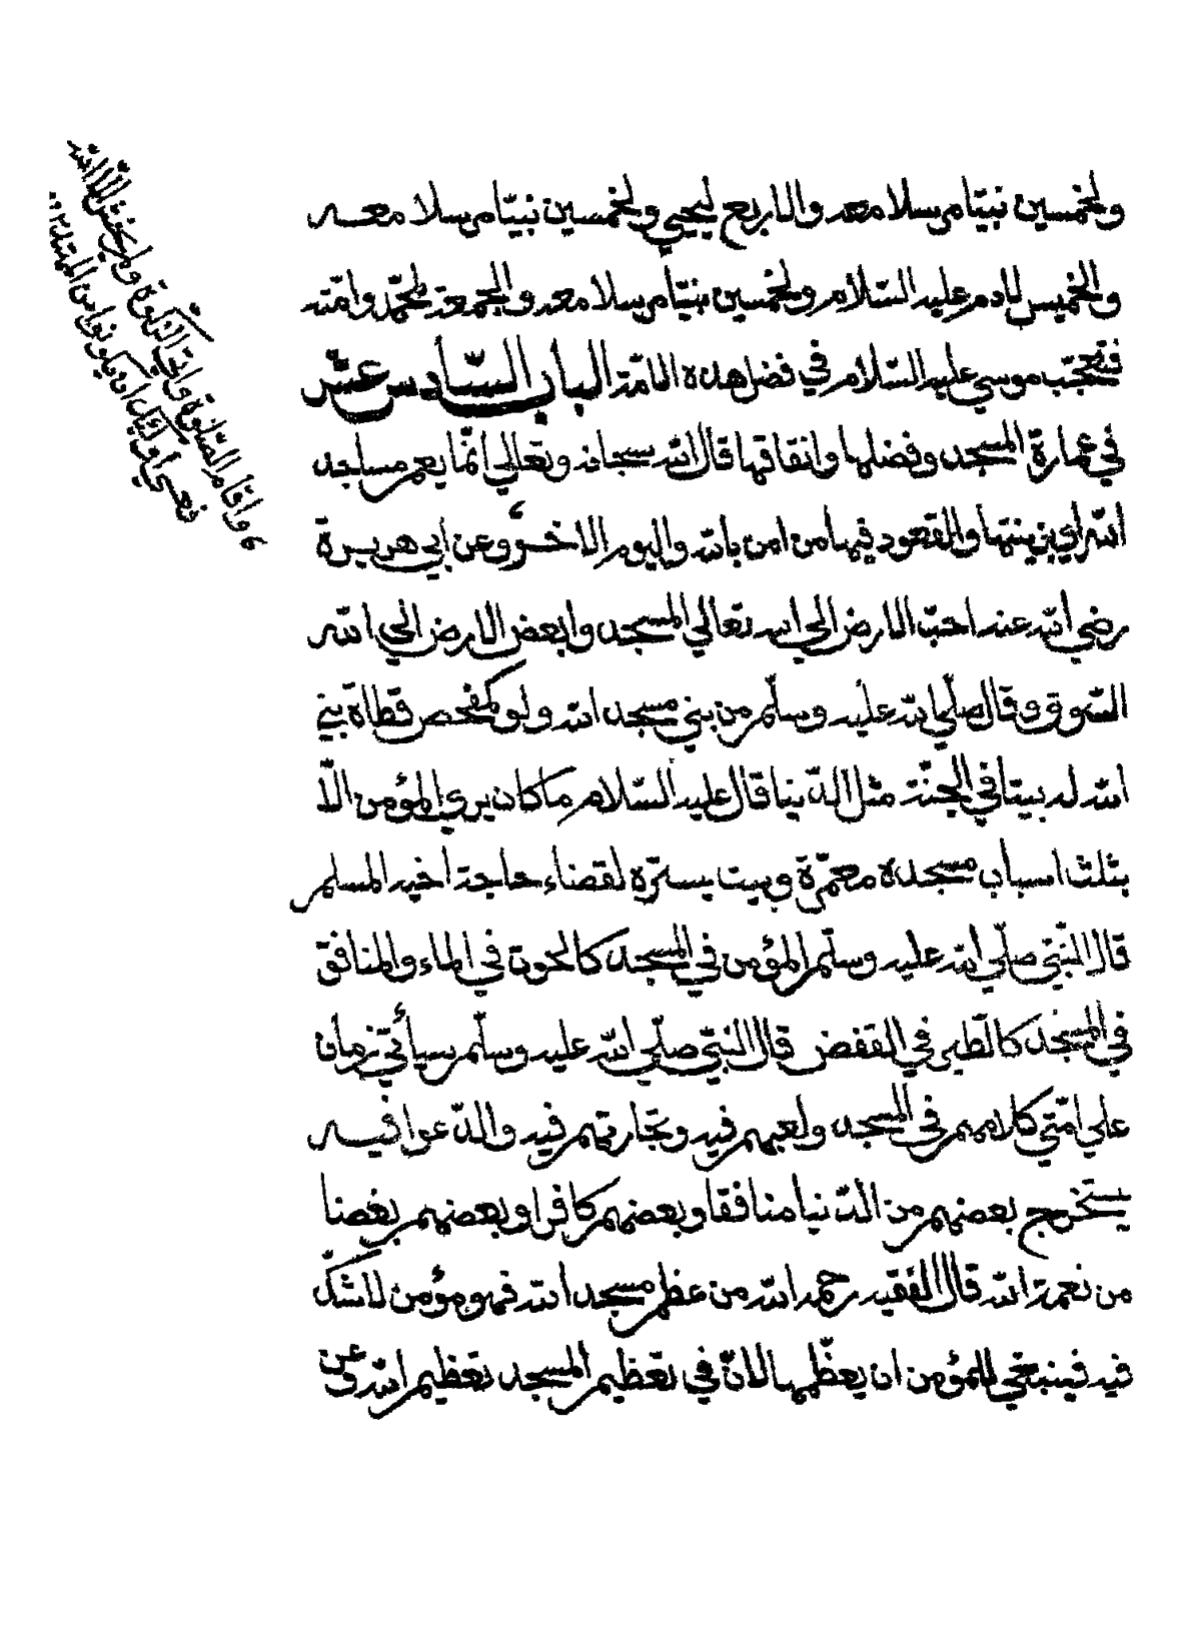 ولخمسين نبيّا مرسلا معه والاربع ليحيي ولخمسين نبيّا مرسلا معه
والخميس لادم عليه السّلام ولخمسين نبيّا مرسلا معه والجمعة لمحمّد وامّته
فتعجّب موسي عليه السّلام في فضل هذه الامّة الباب السّادس عشر
في عمارة المسجد وفضلها وانفاقها قال الله سبحانه وتعالي انّما يعمر مساجد
الله اي بزينتها والقعود فيها من امن بالله واليوم الاخر ؤ وعن ابي هريرة
رضي الله عنه احبّ الارض الي الله تعالي المسجد وابغض الارض الي الله
السّوق وقال صلّي الله عليه وسلّم من بني مسجد الله ولو كمفحص قطاة بني
الله له بيتا في الجنّة مثل الدّنيا قال عليه السّلام ما كان يري المؤمن الّا
بثلث اسباب مسجده معمّرة وبيت يسترّه لقضاء حاجة اخيه المسلم
قال النّبيّ صلّي الله عليه وسلّم المؤمن في المسجد كالحوت في الماء والمنافق
في المسجد كالطّير في القفض قال النبيّ صلّي الله عليه وسلّم سيأتي زمان
علي امّتي كلامهم في المسجد ولعبهم فيه وتجارتهم فيه والدّعوا فيه
يستخرج بعضهم من الدّنيا منافقا وبعضهم كافرا وبعضهم بغضا
من نعمة الله قال الفقيه رحمه الله من عظم مسجد الله فهو مؤمن لا شكّ
فيه فينبغي للمؤمن ان يعظّمها لانّ في تعظيم المسجد تعظيم الله وعن
واقام الصّلوة واتي الزّكوة ولم يخش الّا الله
فعسي اولئك ان يكونوا من المهتد